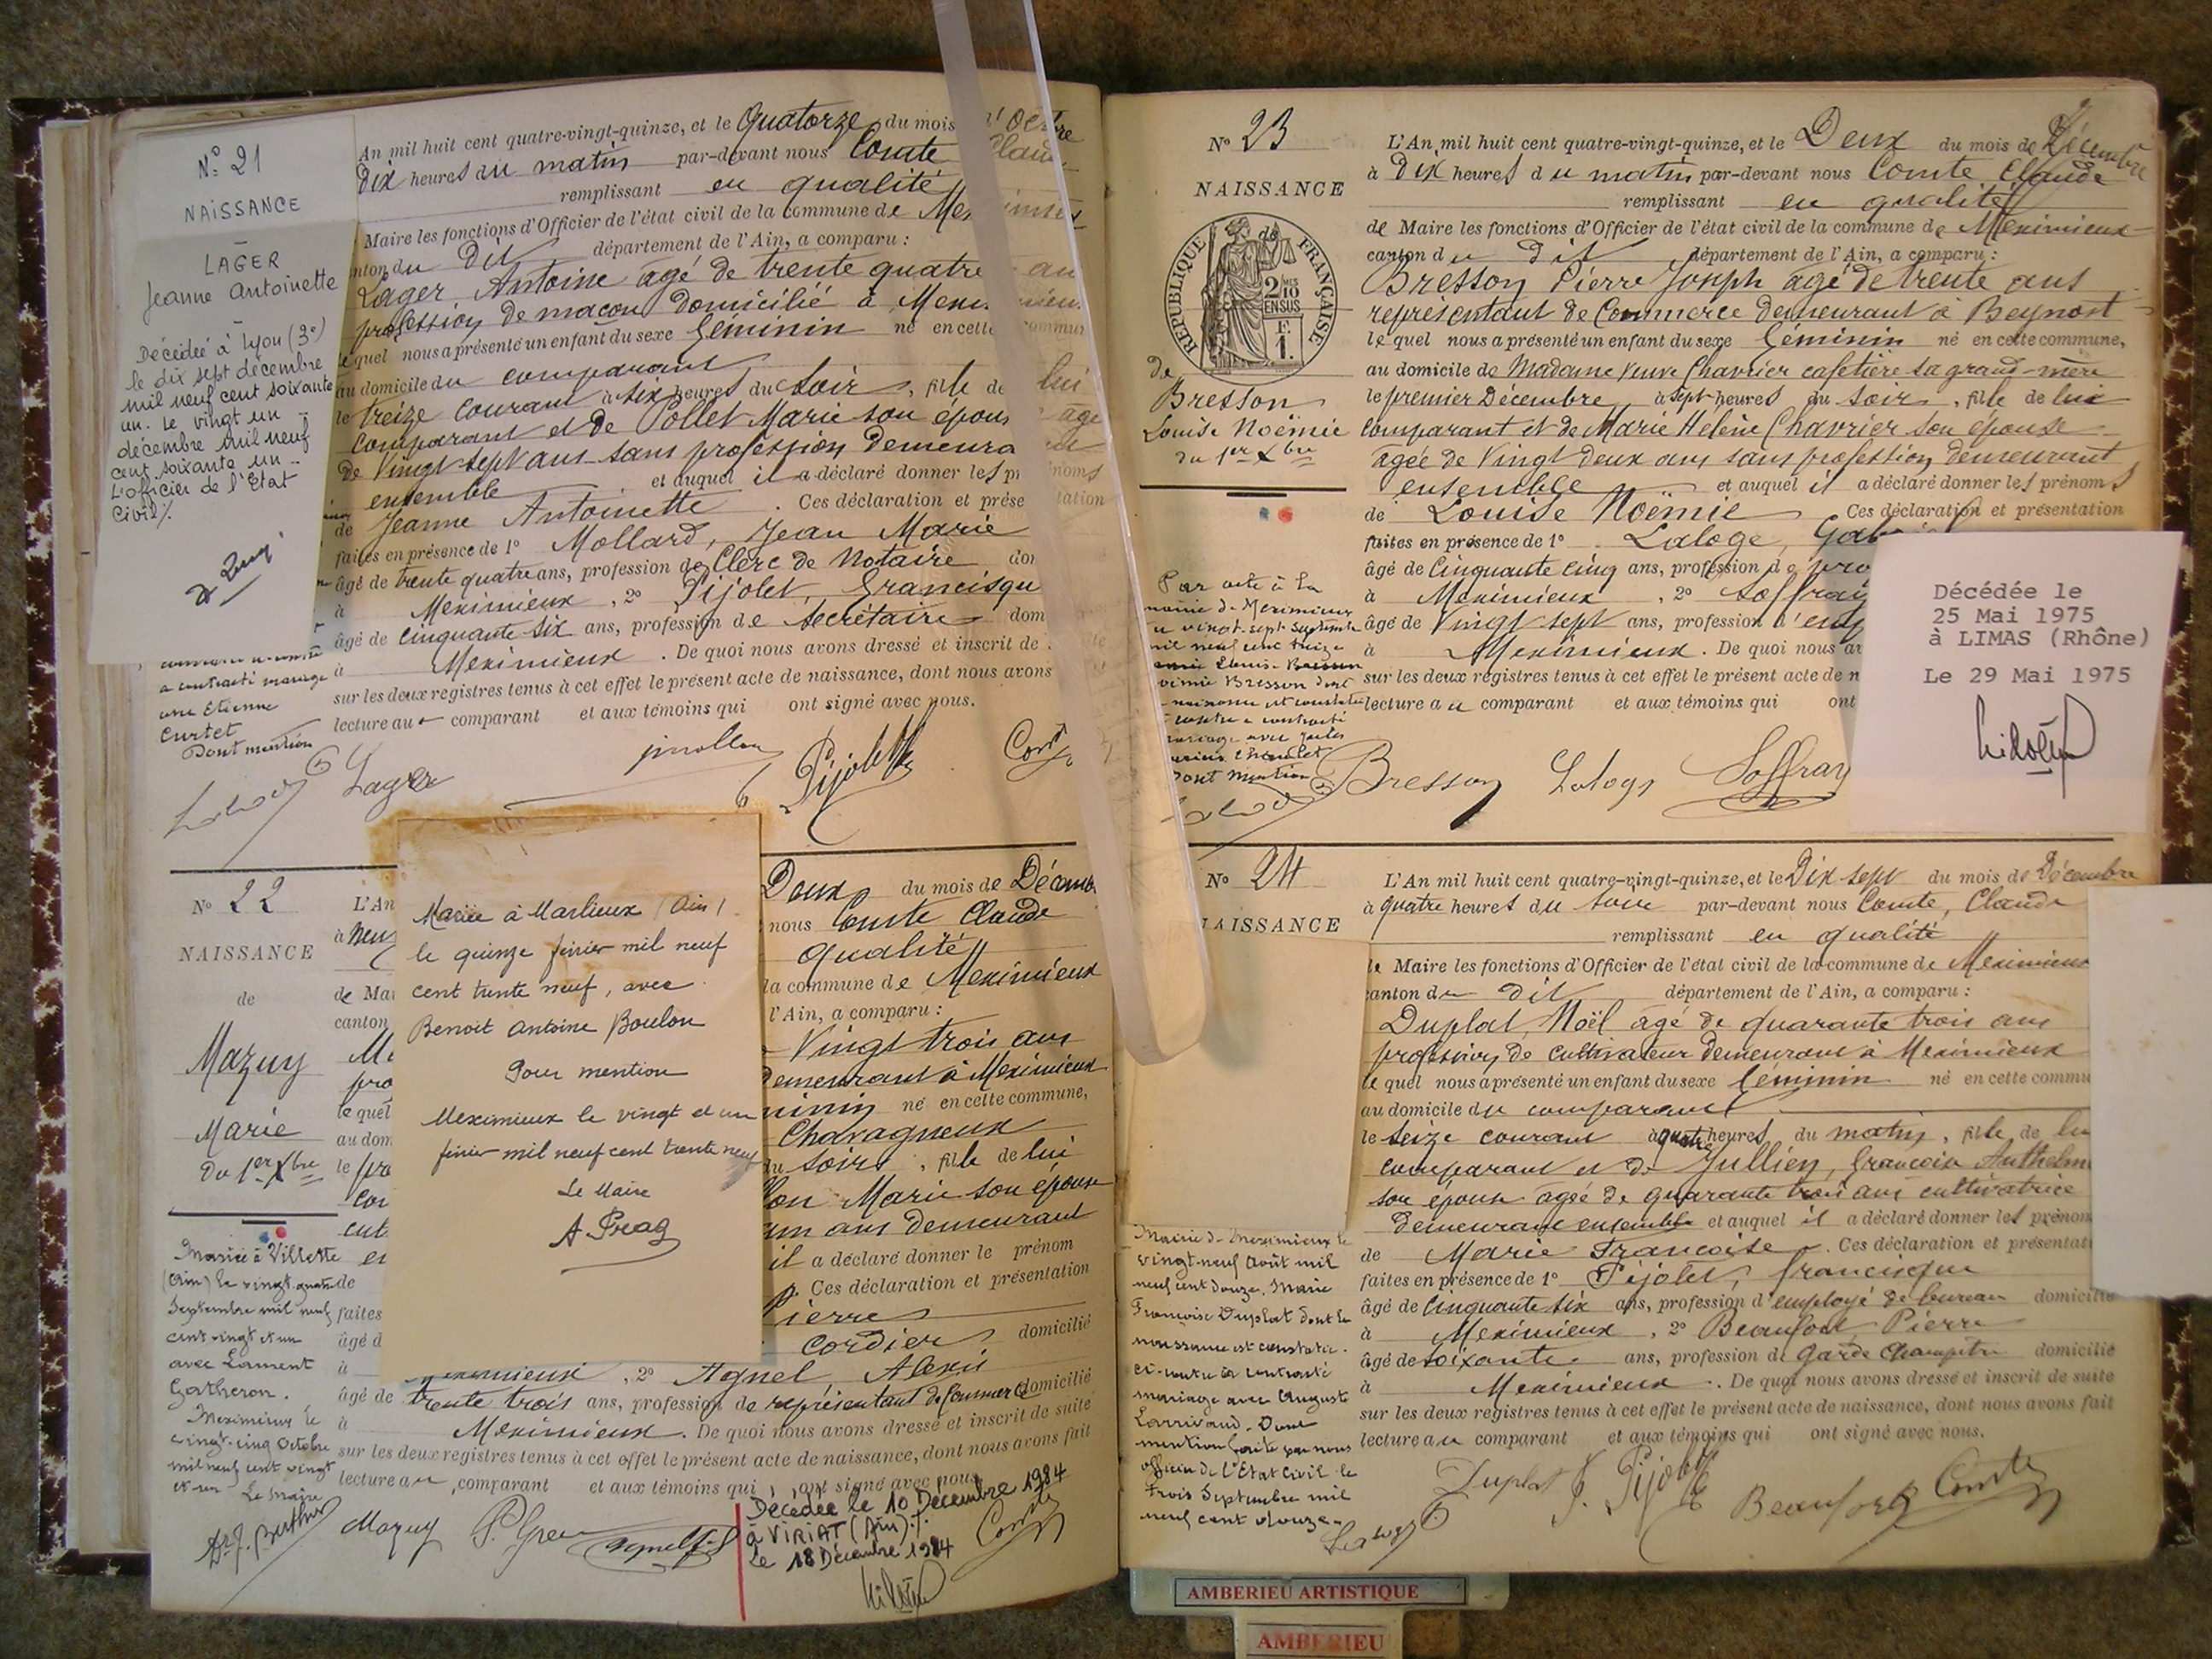 N° 21
NAISSANCE
LAGER
Jeanne Antoinette
Décédée à Lyon (3e)
le dix sept décembre
mil neuf cent soixante
un. Le vingt un
décembre mil neuf
cent soixante un
L'officier de l'Etat
Civil
a contracté mariage
avec Etienne
Curtet
Dont mention
An mil huit cent quatre-vingt-quinze, et le Quatorze du mois d'Octobre
Dix heures du matin par-devant nous Comte Claude
remplissant en qualité
Maire les fonctions d'Officier de l'état civil de la commune de Meximieux
canton du Dit département de l'Ain, a comparu :
Lager Antoine âgé de trente quatre ans
profession de maçon domicilié à Meximieux
lequel nous a présenté un enfant du sexe féminin né en cette commune
au domicile du comparant
le treize courant à six heures du soir, fille de lui
comparant et de Pollet Marie son épouse âgée
de Vingt sept ans sans profession Demeurant
ensemble et auquel il a déclaré donner les prénoms
de Jeanne Antoinette. Ces déclaration et présentation
faites en présence de 1° Mollard, Jean Marie
âgé de trente quatre ans, profession de Clerc de Notaire
à Meximieux, 2° Pijolet, Francisque
âgé de cinquante six ans, profession de Secrétaire dom
à Meximieux. De quoi nous avons dressé et inscrit de
sur les deux registres tenus à cet effet le présent acte de naissance, dont nous avons
lecture au comparant et aux témoins qui ont signé avec nous.
Lager jmollard Pijolet Comte
N° 22
NAISSANCE
de
Mazuy
Marie
Du 1er Xbre
Mariée à Villette
(Ain) le vingt-quatre
Septembre mil neuf
cent vingt et un
avec Laurent
Gatheron.
Meximieux le
vingt-cinq Octobre
mil neuf cent vingt
et un Le Maire
L'An
à Neuf
de Mai
canton
pro
le quel
au dom
le pre
faites
âgé d
à
Mariée à Marlieux (Ain)
le quinze février mil neuf
cent trente neuf, avec
Benoit Antoine Boulon
Pour mention
Meximieux le vingt et un
février mil neuf cent trente neuf
Le Maire
Deux du mois de Décemb
nous Comte Claude
qualité
la commune de Meximieux
l'Ain, a comparu :
Vingt trois ans
Demeurant à Meximieux
minin né en cette commune,
Chavagneux
du soir, fille de lui
Marie son épouse
un ans Demeurant
il a déclaré donner le prénom
Ces déclaration et présentation
Pierre
Cordier domicilié
Meximieux, 2° Agnel, Alexis
âgé de trente trois ans, profession de représentant de Commerce domicilié
à Meximieux. De quoi nous avons dressé et inscrit de suite
sur les deux registres tenus à cet effet le présent acte de naissance, dont nous avons fait
lecture au comparant et aux témoins qui ont signé avec nous
Mazuy
Décédée le 10 Décembre 1984
à VIRIAT (Ain)./.
Le 18 Décembre 1984
N° 23
NAISSANCE
RÉPUBLIQUE FRANÇAISE
2/10 EN SUS
F. 1.
de
Bresson
Louise Noëmie
du 1er Xbre
Par acte à la
mairie de Meximieux
vingt-sept Septembre
mil neuf cent treize
Bresson dont
mariage avec Jules
Dont mention
L'An mil huit cent quatre-vingt-quinze, et le Deux du mois de Décembre
à Dix heures du matin par-devant nous Comte Claude
remplissant en qualité
de Maire les fonctions d'Officier de l'état civil de la commune de Meximieux
canton du dit département de l'Ain, a comparu :
Bresson Pierre Joseph âgé de trente ans
représentant de Commerce demeurant à Beynost
lequel nous a présenté un enfant du sexe féminin né en cette commune,
au domicile de Madame Veuve Chavrier cafetière sa grand-mère
le premier Décembre à sept heures du soir, fille de lui
comparant et de Marie Helène Chavrier son épouse
âgée de Vingt deux ans sans profession demeurant
ensemble et auquel il a déclaré donner les prénoms
de Louise Noëmie Ces déclaration et présentation
faites en présence de 1° Laloge, Gab
âgé de Cinquante cinq ans, profession de pro
à Meximieux, 2° Soffray
âgé de Vingt sept ans, profession d'emp
à Meximieux. De quoi nous av
sur les deux registres tenus à cet effet le présent acte de n
lecture au comparant et aux témoins qui ont
Bresson Laloge Soffray
Décédée le
25 Mai 1975
à LIMAS (Rhône)
Le 29 Mai 1975
N° 24
NAISSANCE
Mairie de Meximieux le
vingt-neuf Août mil
neuf cent douze, Marie
Françoise Duplat dont la
naissance est constatée
ci-contre a contracté
mariage avec Auguste
Larrivaud. Dont
mention faite par nous
officier de l'Etat Civil le
trois Septembre mil
neuf cent douze.
L'An mil huit cent quatre-vingt-quinze, et le Dix sept du mois de Décembre
à quatre heures du soir par-devant nous Comte, Claude
remplissant en qualité
de Maire les fonctions d'Officier de l'état civil de la commune de Meximieux
canton du dit département de l'Ain, a comparu :
Duplat, Noël âgé de quarante trois ans
profession de cultivateur demeurant à Meximieux
lequel nous a présenté un enfant du sexe féminin né en cette commu
au domicile du comparant
le seize courant à quatre heures du matin, fille de lui
comparant et de Jullien, Françoise Anthelm
son épouse âgée de quarante trois ans cultivatrice
demeurant ensemble et auquel il a déclaré donner les prénom
de Marie Françoise. Ces déclaration et présentati
faites en présence de 1° Pijolet, Francisque
âgé de Cinquante six ans, profession d'employé de bureau domicilié
à Meximieux, 2° Beaufort, Pierre
âgé de soixante ans, profession de garde champêtre domicilié
à Meximieux. De quoi nous avons dressé et inscrit de suite
sur les deux registres tenus à cet effet le présent acte de naissance, dont nous avons fait
lecture au comparant et aux témoins qui ont signé avec nous.
Duplat F. Pijolet Beaufort Comte
AMBERIEU ARTISTIQUE
AMBERIEU